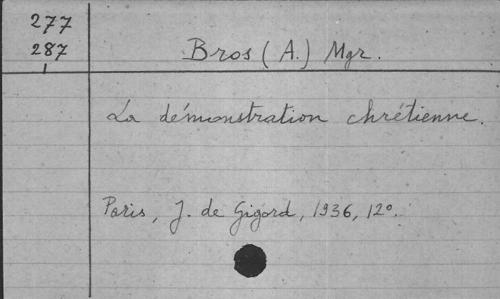 277
287
Bros (A.) Mgr.
La démonstration chrétienne.
Paris, J. de Gigord, 1936, 12°.